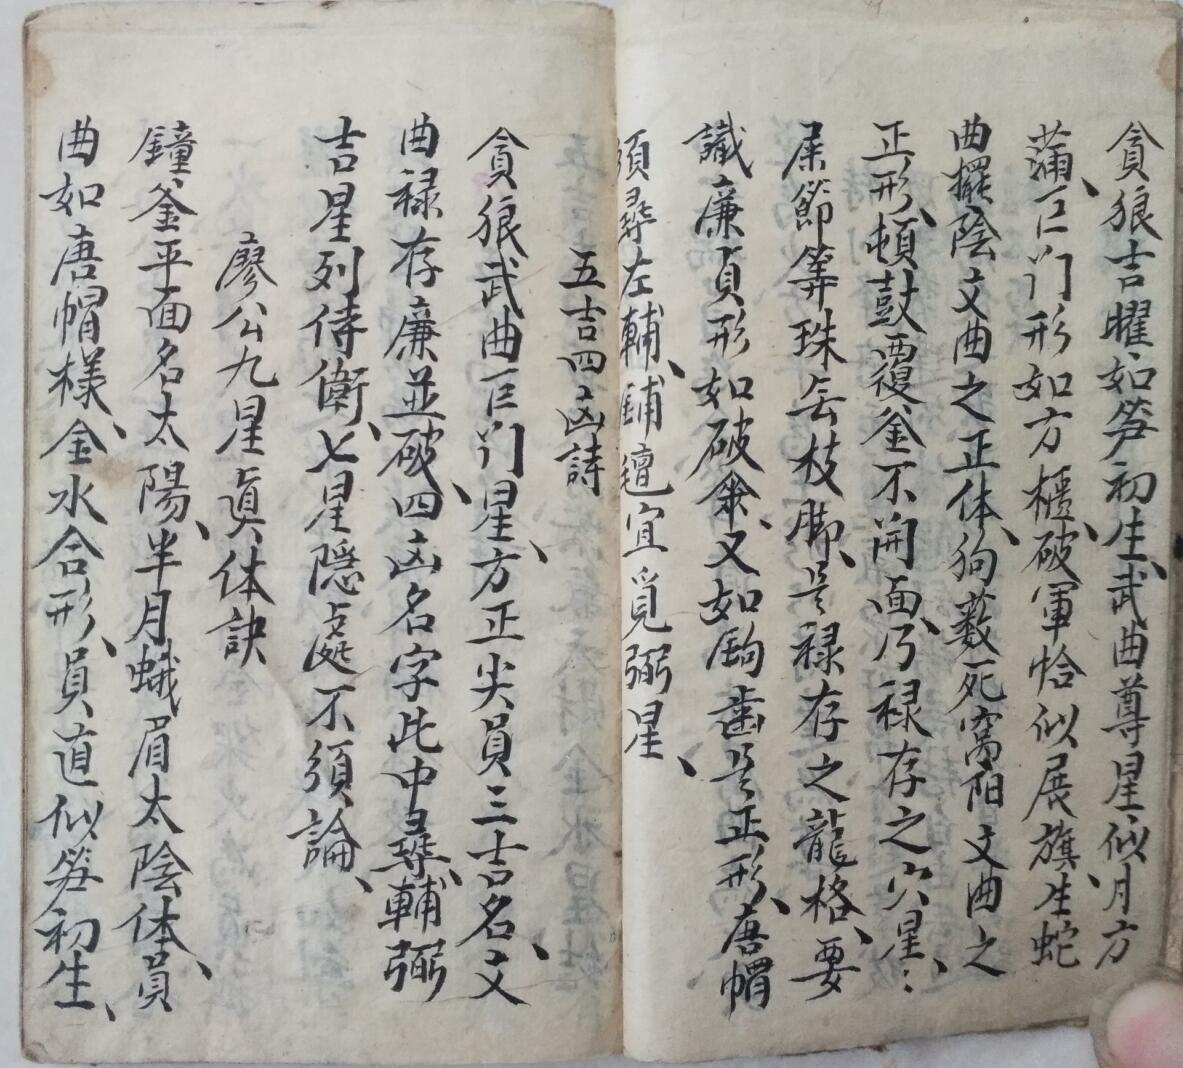 貪狼吉曜如笋初生、武曲尊星似月方
蒲、巨门形如方櫃、破軍恰似展旗、生蛇
曲擺陰文曲之正体、狗薮死窩阳文曲之
正形、頓鼓覆釜不開面、乃禄存之穴星、：
屎節等珠無枝脚、是禄存之龍格、要
識廉貞形如破傘、又如鋤齒是正形、唐帽
須尋左輔、鋪氊宜覓弼星、
五吉四凶詩
貪狼武曲巨门星、方正尖員三吉名、文
曲禄存廉並破、四凶名字此中尋、輔弼
吉星列侍衛、七星隱處不須論、
廖公九星真体訣
鐘釜平面名太陽、半月蛾眉太陰体、員
曲如唐帽樣、金水合形、員直似笋初生、